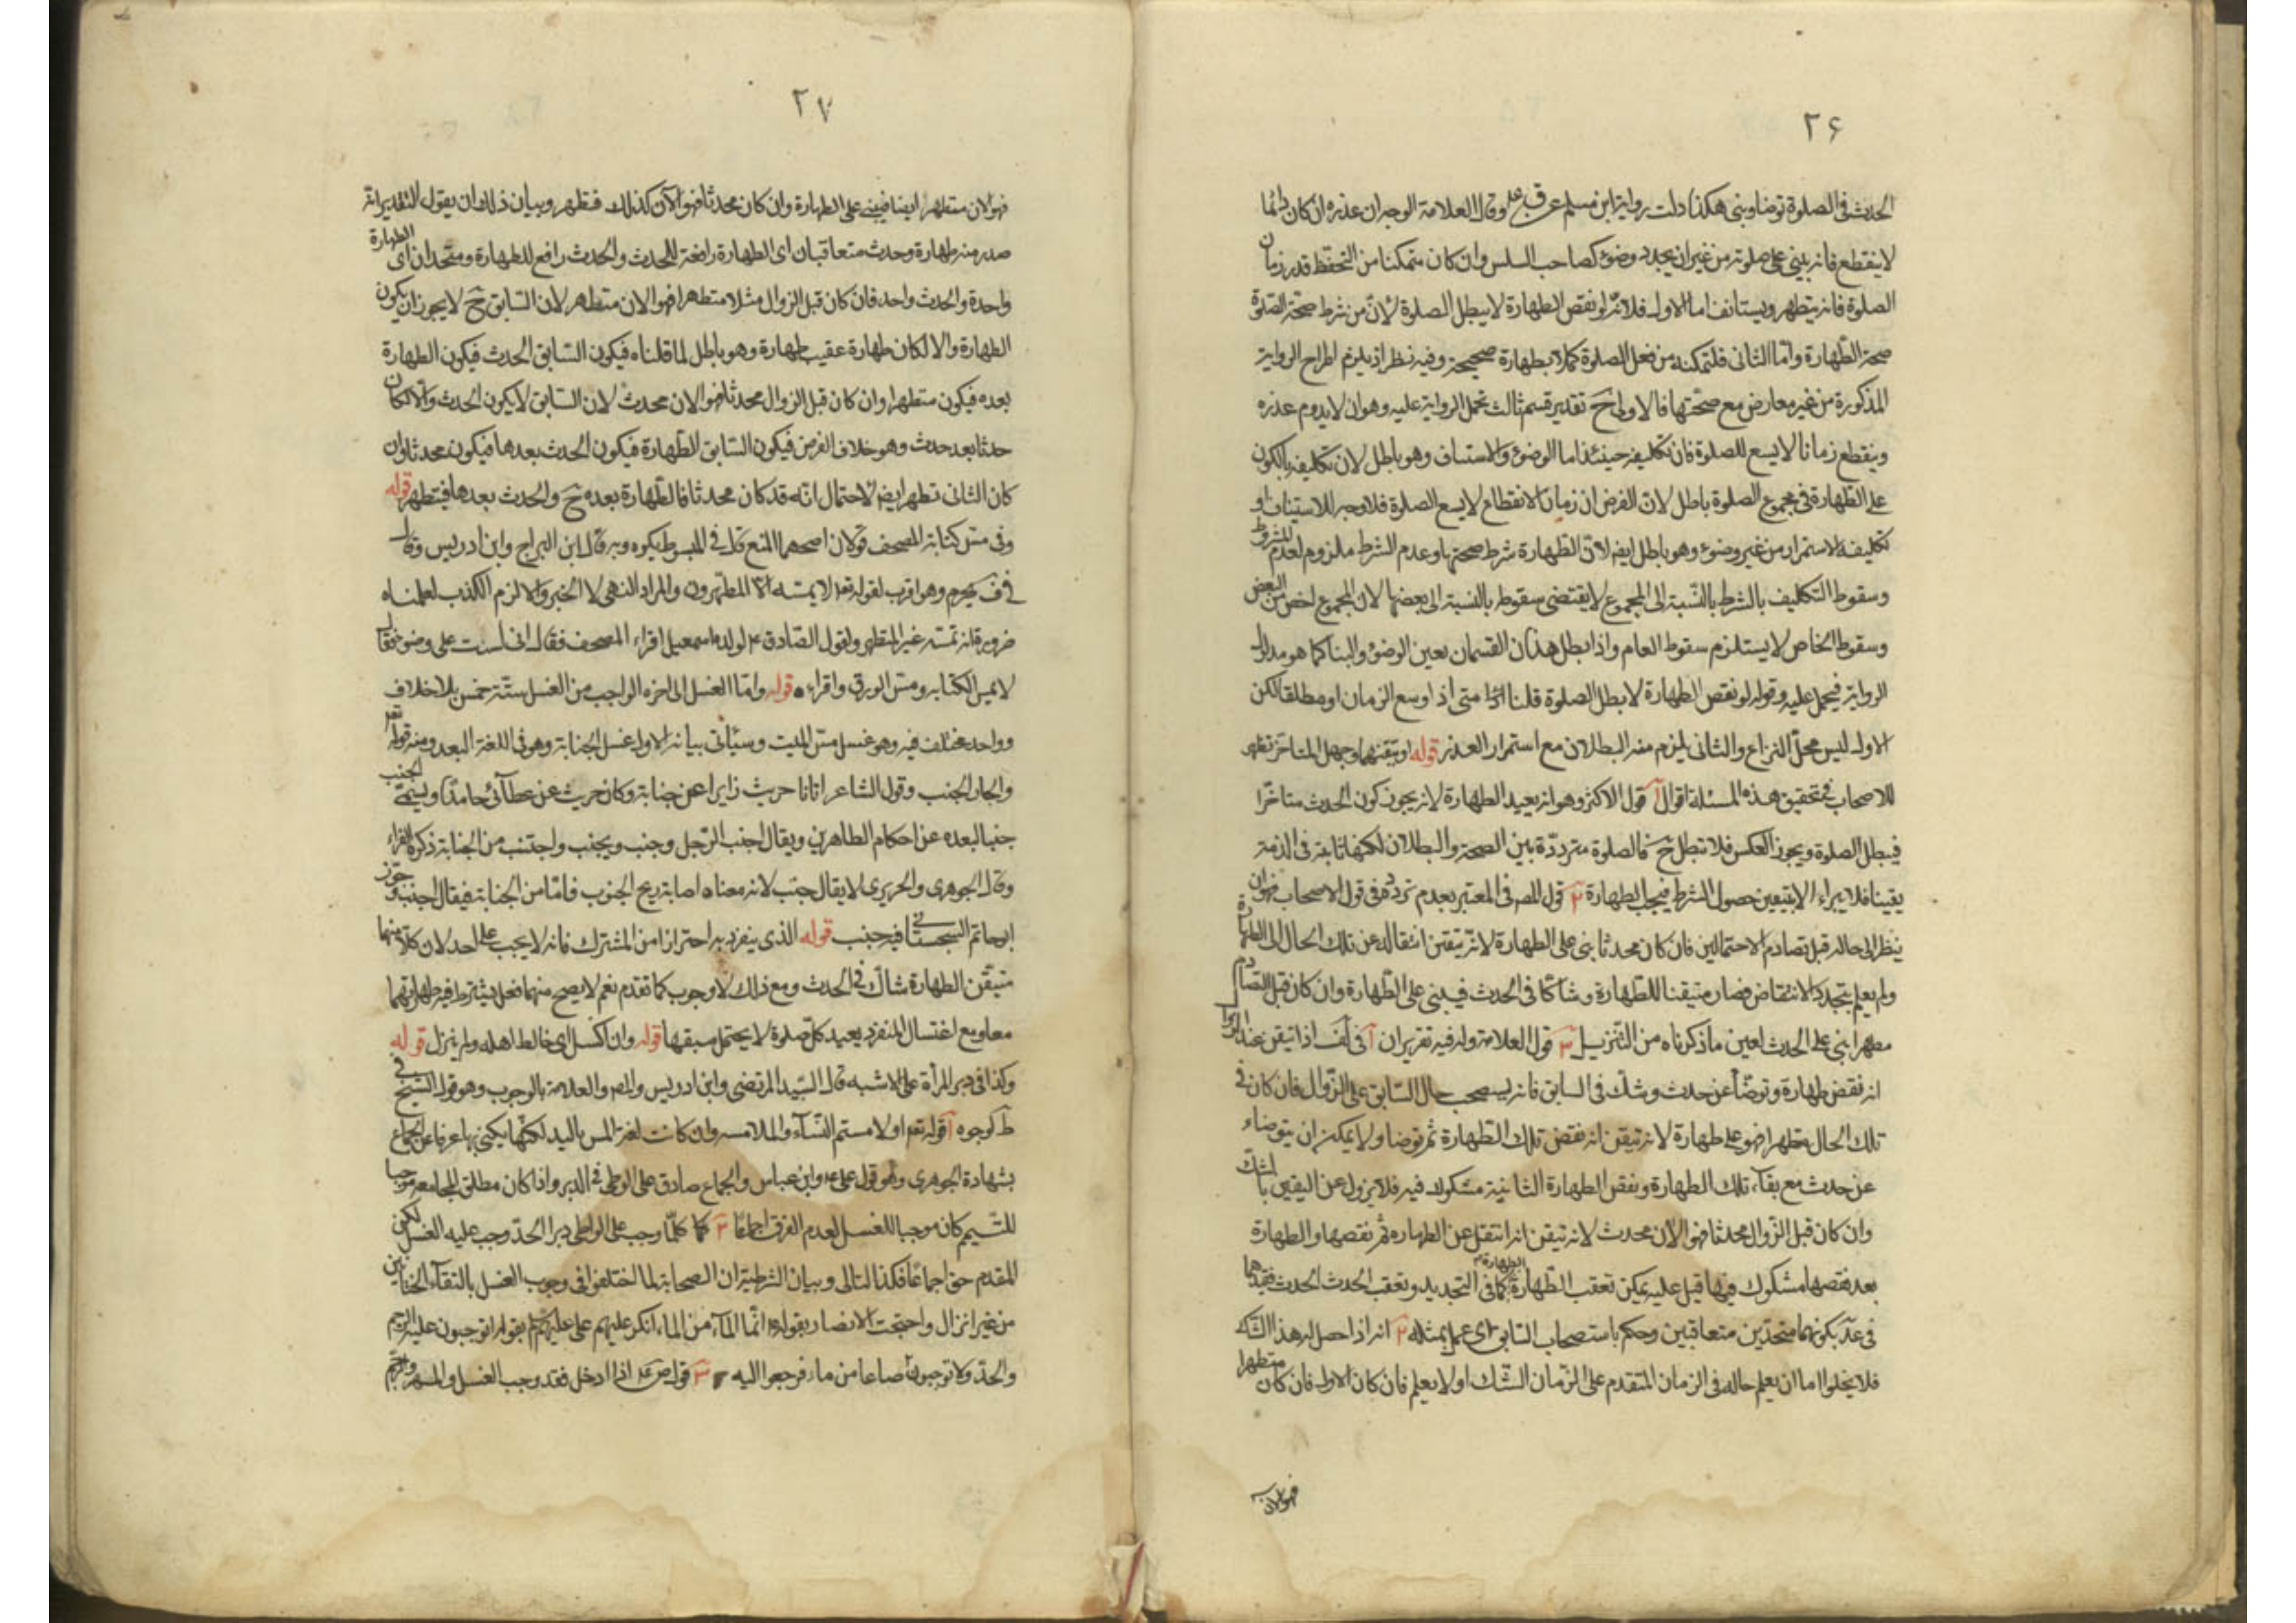 ۲۶
الحدث فى الصلوة توضا وبنى هكذا دلت رواية ابن مسلم عن ق ع وقال العلامة الوجه ان عذره ان كان دائما
لا ينقطع فانه يبنى على صلوته من غير ان يجدد وضوء كصاحب السلس وان كان متمكنا من التحفظ قدر زمان
الصلوة فانه يتطهر ويستانف اما الاول فلانه لو نقض الطهارة لابطل الصلوة لان من شرط صحة الصلوة
صحة الطهارة واما الثانى فلتمكنه من فعل الصلوة كملا بطهارة صحيحة وفيه نظر اذ يلزم اطراح الرواية
المذكورة من غير معارض مع صحتها فالاولى ح تقدير قسم ثالث تحمل الرواية عليه وهو ان لا يدوم عذره
وينقطع زمانا لا يسع للصلوة فان تكليفه حينئذ اما الوضوء والاستيناف وهو باطل لان تكليفه بالكون
على الطهارة فى مجموع الصلوة باطل لان الفرض ان زمان الانقطاع لا يسع الصلوة فلا وجه للاستيناف او
تكليفه الاستمرار من غير وضوء وهو باطل ايضا لان الطهارة شرط صحتها وعدم الشرط ملزوم لعدم المشروط
وسقوط التكليف بالشرط بالنسبة الى المجموع لا يقتضى سقوطه بالنسبة الى بعضها لان المجموع اخص من البعض
وسقوط الخاص لا يستلزم سقوط العام واذا بطل هذان القسمان تعين الوضوء والبنا كما هو مدلول
الرواية فيحمل عليه وقوله لو نقض الطهارة لابطل الصلوة قلنا متى اذا وسع الزمان او مطلقا لكن
الاول ليس محل النزاع والثانى يلزم منه البطلان مع استمرار العذر قوله او تيقنهما وجهل المتاخر تطهر
للاصحاب فى تحقيق هذه المسئلة اقوال آ قول الاكثر وهو انه يعيد الطهارة لانه يجوز كون الحدث متاخرا
فيبطل الصلوة ويجوز العكس فلا تبطل ح فالصلوة مترددة بين الصحة والبطلان لكنها ثابتة فى الذمة
يقينا فلا يبراء الا بتيقن حصول الشرط فيجب الطهارة ٢ قول المص فى المعتبر بعدم تردده فى قول الاصحاب فهو ان
ينظر الى حاله قبل تصادم الاحتمالين فان كان محدثا بنى على الطهارة لانه تيقن انتقاله عن تلك الحال الى الطهارة
ولم يعلم تجدد الانتقاض فصار متيقنا للطهارة وشاكا فى الحدث فيبنى على الطهارة وان كان قبل التصادم
مطهرا بنى على الحدث لعين ما ذكرناه من التنزيل ٣ قول العلامة وله فيه تقريران آ فى لف اذا تيقن عند الزوال
انه نقض طهارة وتوضأ عن حدث وشك فى السابق فانه يستصحب حال السابق على الزوال فان كان فى
تلك الحال متطهرا فهو على طهارة لانه تيقن انه نقض تلك الطهارة ثم توضا ولا يمكن ان يتوضاء
عن حدث مع بقاء تلك الطهارة ونقض الطهارة الثانية مشكوك فيه فلا يزول عن اليقين بالشك
وان كان قبل الزوال محدثا فهو الآن محدث لانه تيقن انه انتقل عن الطهارة ثم نقضها والطهارة
بعد نقضها مشكوك فيها قيل عليه يمكن تعقب الطهارة الطهارة كما فى التجديد وتعقب الحدث الحدث فقيدهما
فى عد بكونهما متحدين متعاقبين وحكم باستصحاب السابق اى عمل بمثله ٢ انه اذا حصل له هذا الشك
فلا يخلوا اما ان يعلم حاله فى الزمان المتقدم على الزمان الشك او لا يعلم فان كان الاول فان كان متطهرا
فهو الان
۲۷
فهو الان متطهر ايضا فيبنى على الطهارة وان كان محدثا فهو الآن كذلك فتطهر وبيان ذلك ان يقول التقدير انه
صدر منه طهارة وحدث متعاقبان اى الطهارة رافعة للحدث والحدث رافع للطهارة ومتحدان اى الطهارة
واحدة والحدث واحد فان كان قبل الزوال مثلا متطهرا فهو الان متطهر لان السابق ح لا يجوز ان يكون
الطهارة والا لكان طهارة عقيب طهارة وهو باطل لما قلناه فيكون السابق الحدث فيكون الطهارة
بعده فيكون متطهرا وان كان قبل الزوال محدثا فهو الان محدث لان السابق لا يكون الحدث والا لكان
حدثا بعد حدث وهو خلاف الفرض فيكون السابق الطهارة فيكون الحدث بعدها فيكون محدثا وان
كان الثانى تطهر ايضا لاحتمال انه قد كان محدثا فالطهارة بعده ح والحدث بعدها فيتطهر قوله
وفى مس كتابة المصحف قولان اصحهما المنع قال فى المبسوط يكره وبه قال ابن البراج وابن ادريس وقال
فى ف يحرم وهو اقرب لقوله تعا لا يمسه الا المطهرون والمراد النهى لا الخبر والا لزم الكذب لعلمناه
ضرورة انه تمسه غير المتطهر ولقول الصادق ع لولده اسمعيل اقراء المصحف فقال انى لست على وضوء فقال
لا تمس الكتابه ومس الورق واقراء قوله واما الغسل الى اخره الواجب من الغسل ستة خمس بلا خلاف
وواحد مختلف فيه وهو غسل مس الميت وسيأتى بيانه الاول غسل الجنابة وهو فى اللغة البعد ومنه قوله تعا
والجار الجنب وقول الشاعر اتانا حريث زايرا عن جنابة وكان حريث عن عطائى جامدا ويسمى الجنب
جنبا لبعده عن احكام الطاهرين ويقال اجنب الرجل وجنب ويجنب واجتنب من الجنابة ذكره الفراء
وقال الجوهرى والحريرى لا يقال جنب لانه معناه اصابة ريح الجنوب فاما من الجنابة فيقال اجنب وجوز
ابو حاتم السجستانى فيه جنب قوله الذى ينفرد به احترازا من المشترك فانه لا يجب على احد لان كلا منهما
متيقن الطهارة شاك فى الحدث ومع ذلك لا وجوب كما تقدم نعم لا يصح منهما فعل يشترط فيه طهارتهما
معا ومع اغتسال المنفرد يعيد كل صلوة لا يحتمل سبقها قوله وان اكسل اى خالط اهله ولم ينزل قوله
وكذا فى دبر المرأة على الاشبه قال السيد المرتضى وابن ادريس والمص والعلامة بالوجوب وهو قول الشيخ فى
ط لوجوه آ قوله تعم او لامستم النساء والملامسه وان كانت لغة المس باليد لكنها يكنى بها عرفا عن الجماع
بشهادة الجوهرى وهو قول على ع وابن عباس والجماع صادق على الوطى فى الدبر واذا كان مطلق المجامعه موجبا
للتيمم كان موجبا للغسل لعدم الفرق اجماعا ٢ كلما وجب على الواطى دبرا الحد وجب عليه الغسل لكن
المقدم حق اجماعا فكذا التالى وبيان الشرطية ان الصحابة لما اختلفوا فى وجوب الغسل بالتقاء الختانين
من غير انزال واحتجت الانصار بقوله انما الماء من الماء انكر عليهم على عليهم بقوله اتوجبون عليه الرجم
والحد ولا توجبون صاعا من ماء فرجعوا اليه ٣ قول ص ع اذا ادخل فقد وجب الغسل والمهر والرجم